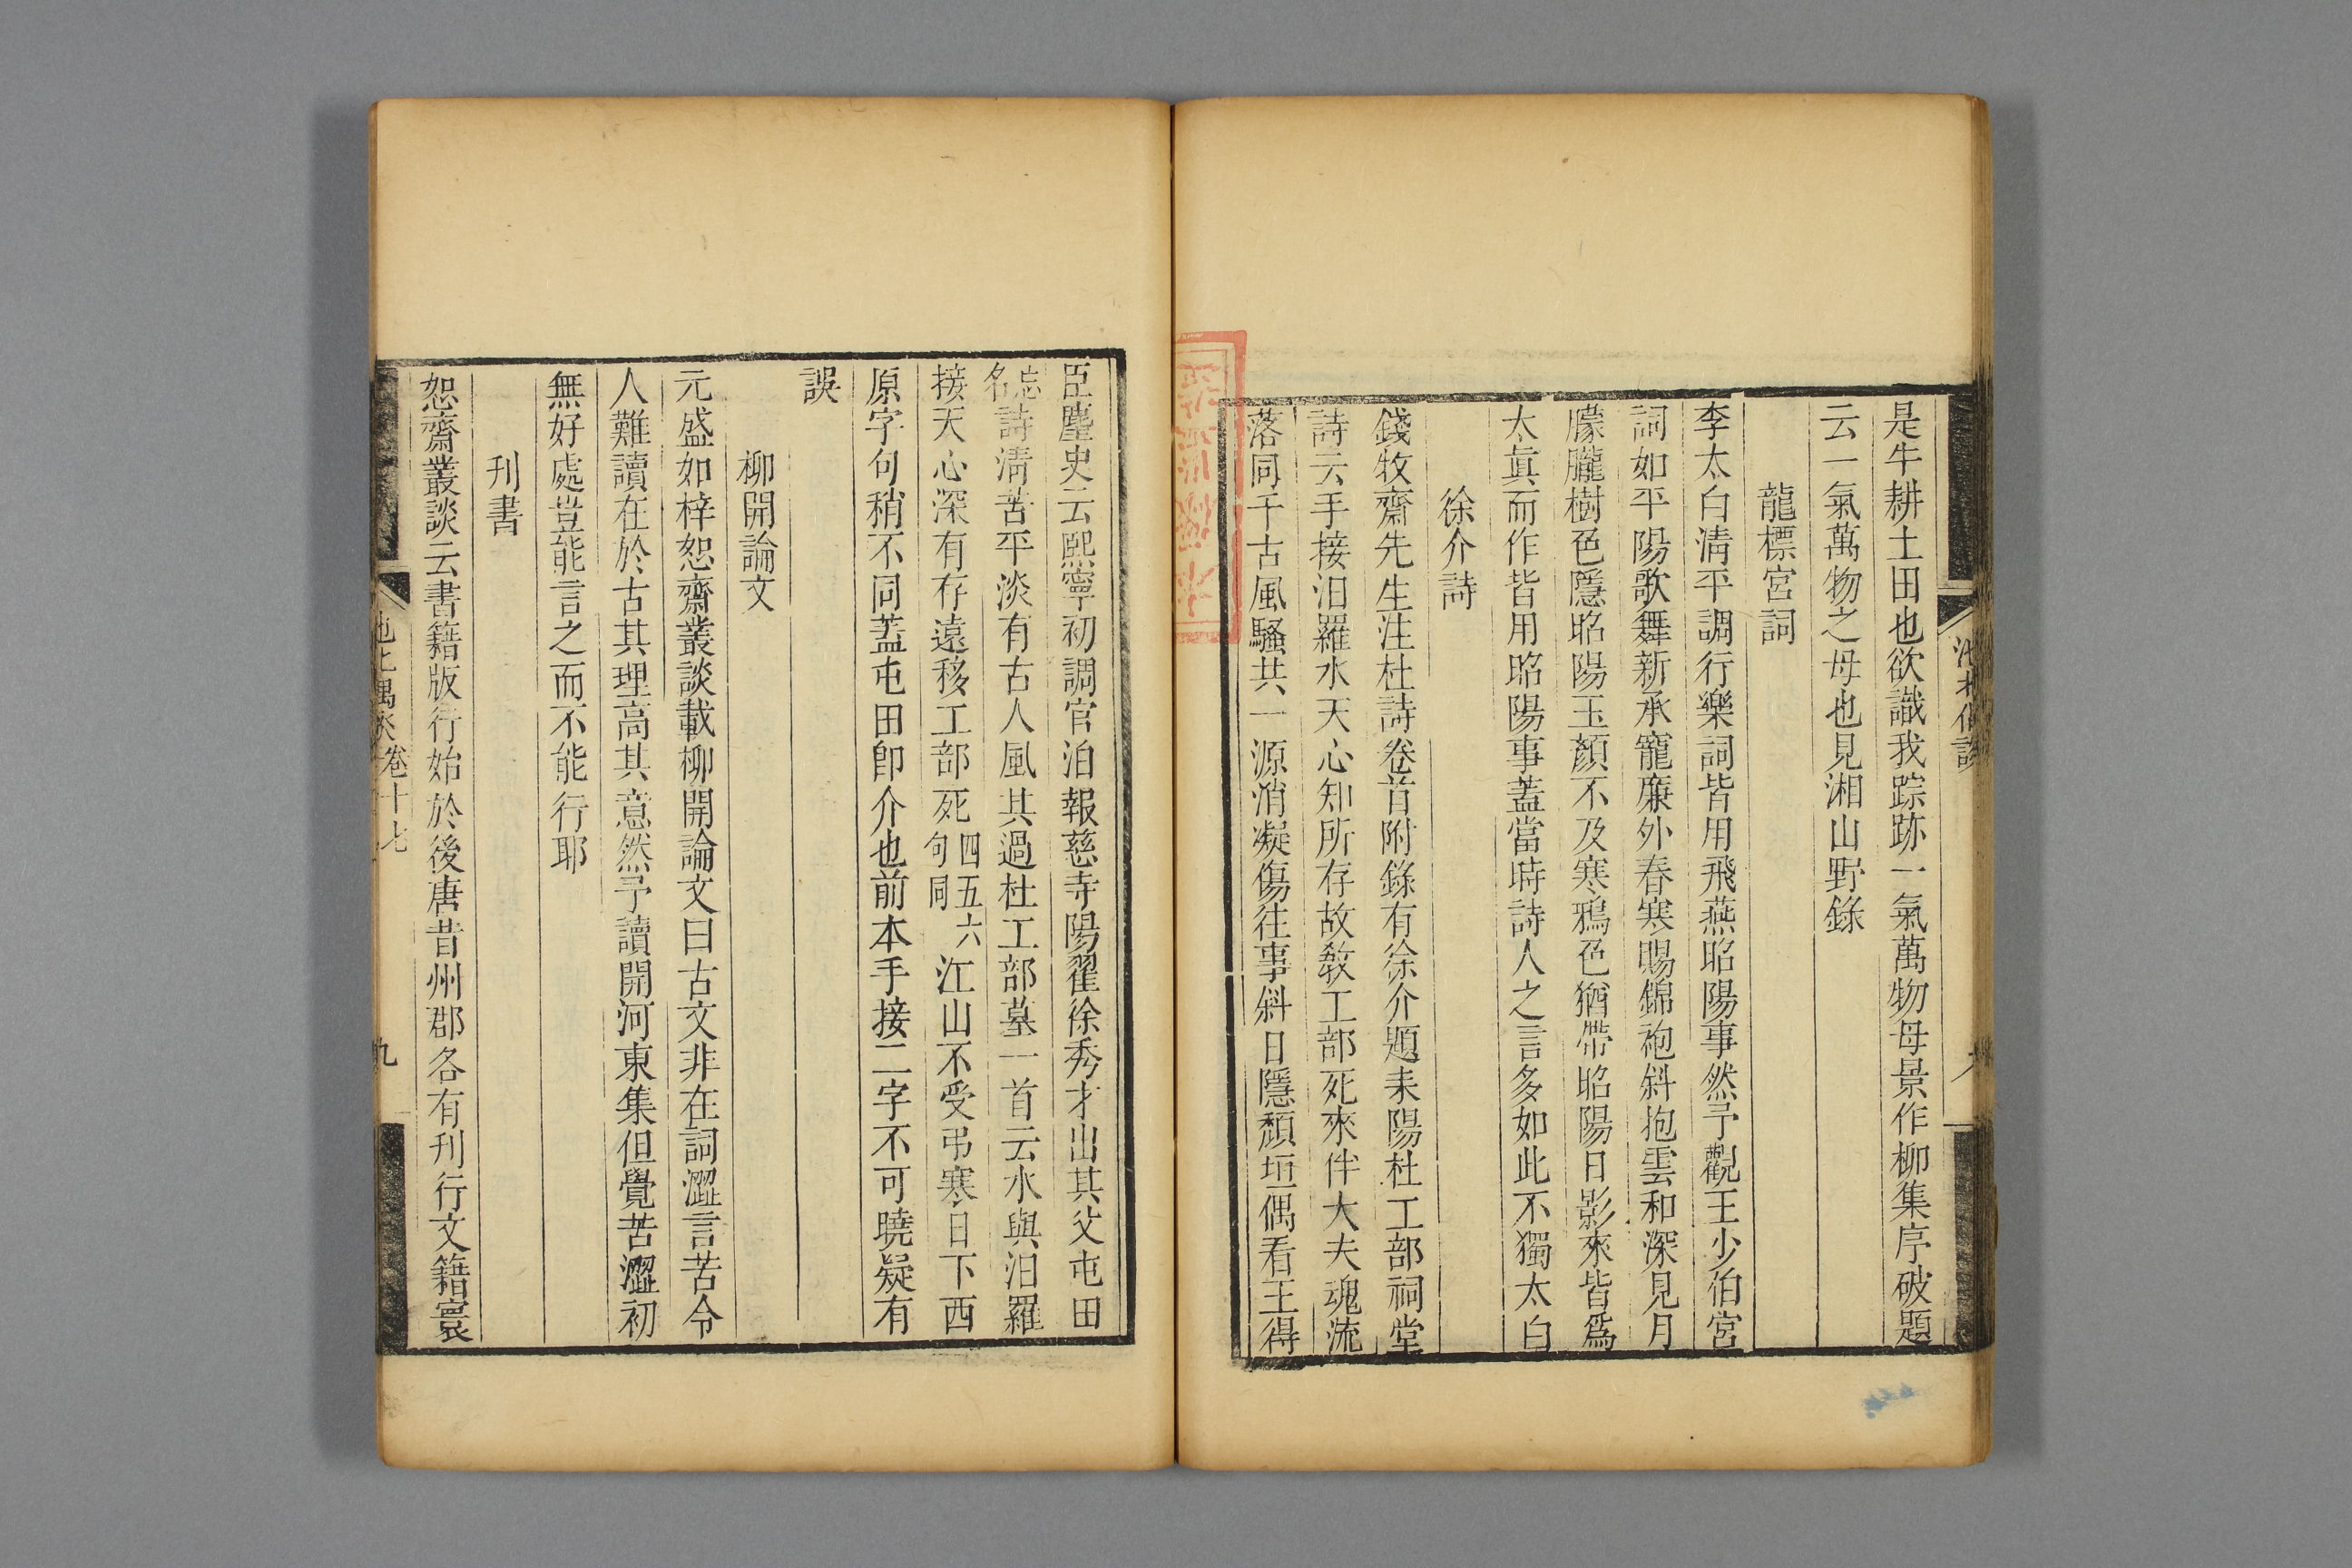 是牛耕土田也欲識我踪跡一氣萬物母景作柳集序破題
云一氣萬物之母也見湘山野錄
龍標宮詞
李太白清平調行樂詞皆用飛燕昭陽事然予觀王少伯宮
詞如平陽歌舞新承寵廉外春寒賜錦袍斜抱雲和深見月
朦朧樹色隱昭陽玉顏不及寒鴉色猶帶昭陽日影來皆爲
太眞而作皆用昭陽事蓋當時詩人之言多如此不獨太白
徐介詩
錢牧齋先生注杜詩卷首附錄有徐介題耒陽杜工部祠堂
詩云手接汨羅水天心知所存故敎工部死來伴大夫魂流
落同千古風騷共一源消凝傷往事斜日隱頹垣偶看王得
臣麈史云熙寧初調官泊報慈寺陽翟徐秀才出其父屯田
忘名詩淸苦平淡有古人風其過杜工部墓一首云水與汨羅
接天心深有存遠移工部死四五六句同江山不受弔寒日下西
原字句稍不同蓋屯田卽介也前本手接二字不可曉疑有
誤
柳開論文
元盛如梓恕齋叢談載柳開論文曰古文非在詞澀言苦令
人難讀在於古其理高其意然予讀開河東集但覺苦澀初
無好處豈能言之而不能行耶
刊書
恕齋叢談云書籍版行始於後唐昔州郡各有刊行文籍寰
卷十七
九